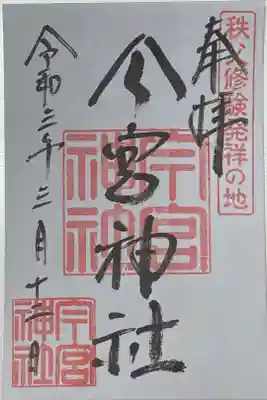 秩父修験発祥の地
奉拝
今宮神社
今宮神社
令和三年三月十二日
今宮神社